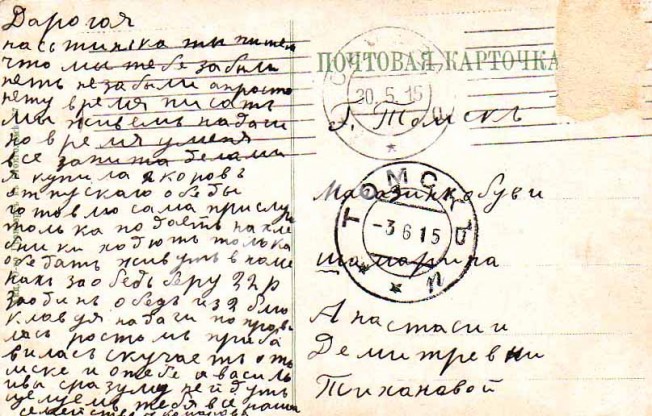 Дарогая
настинка ты пишем
что мы тебе забыли
нетъ незабыли апросто
нету время писать
мы живемъ надаги
но время уменя
все занита делами
я купила якоровъ
отпускаю обеды
готовлю сама прислуг
толька подаетъ нахле
бники ходютъ толька
обедать живутъ внаше
заобедъ беру 22р
заодинъ обедъ из 2 блю
клавдя надаги попров
лась ростомъ приба
вилась скучаетъ ото
мске и отебе авасиль
сразуму нейдутъ
целуемъ тебя все наши
ПОЧТОВАЯ КАРТОЧКА
30.5.15
г. Томскъ
ТОМСКЪ
-3 6 15
Магазинъ обуви
Шамарина
Анастасии
Демитревни
Тихановой